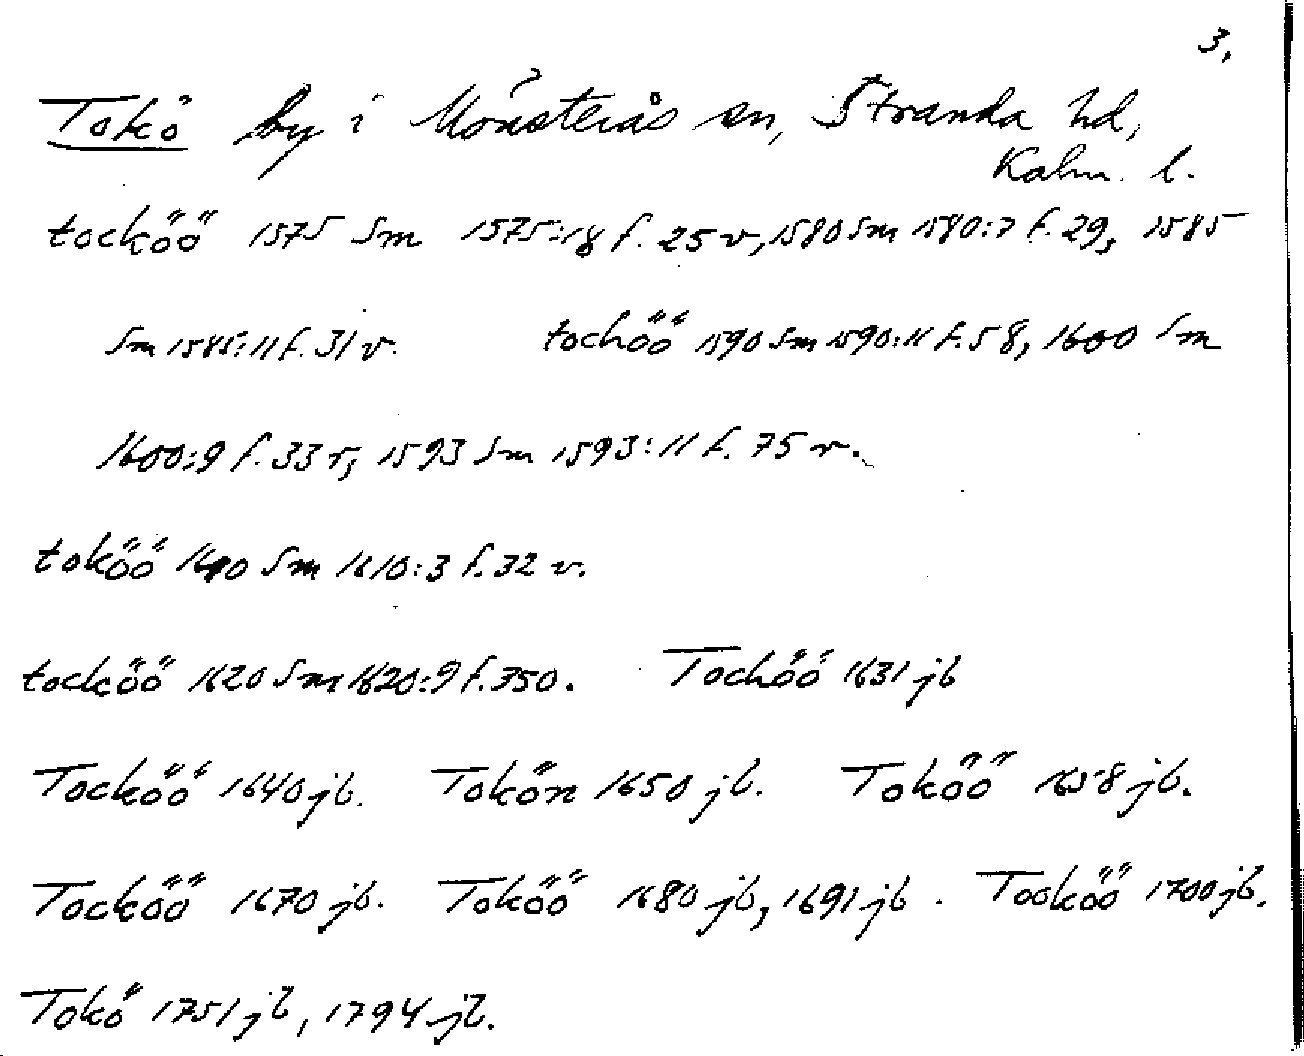 3.
Tokö by i Mönsterås sn, Stranda hd,
Kalm. l.
tocköö 1575 Sm 1575:18 f. 25 v, 1580 Sm 1580:7 f. 29, 1585
Sm 1585:11 f. 31 v. tochöö 1590 Sm 1590:11 f. 58, 1600 Sm
1600:9 f. 33 r, 1593 Sm 1593:11 f. 75 v.
toköö 1610 Sm 1610:3 f. 32 v.
tocköö 1620 Sm 1620:9 f. 350. Tochöö 1631 jb
Tocköö 1640 jb. Tokön 1650 jb. Toköö 1658 jb.
Tocköö 1670 jb. Toköö 1680 jb, 1691 jb. Tooköö 1700 jb.
Tokö 1751 jb, 1794 jb.